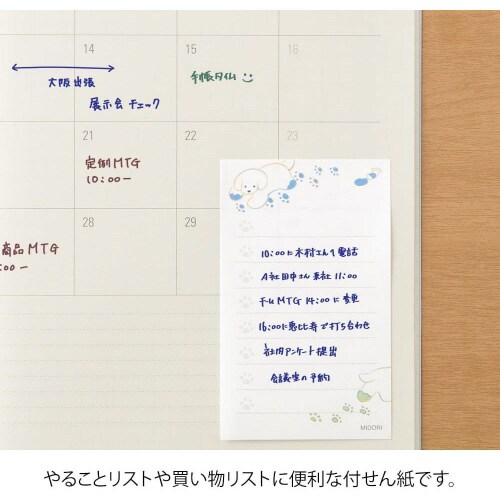 14
15
16
大阪出張
展示会チェック
手帳タイム
21
22
23
定例MTG
10:00ー
28
29
商品MTG
:00ー
10:00に木村さんへ電話
A社田中さん来社 11:00
チームMTG 14:00に変更
16:00に恵比寿で打ち合わせ
社内アンケート提出
会議室の予約
MIDORI
やることリストや買い物リストに便利な付せん紙です。